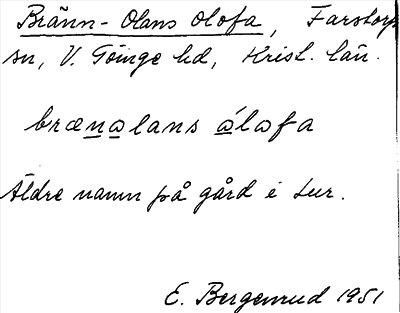 Bränn-Olans Olofa, Farstorps
sn, V. Göinge hd, Krist. län.
brænalans álafa
Äldre namn på gård i Lur.
E. Bergenrud 1951